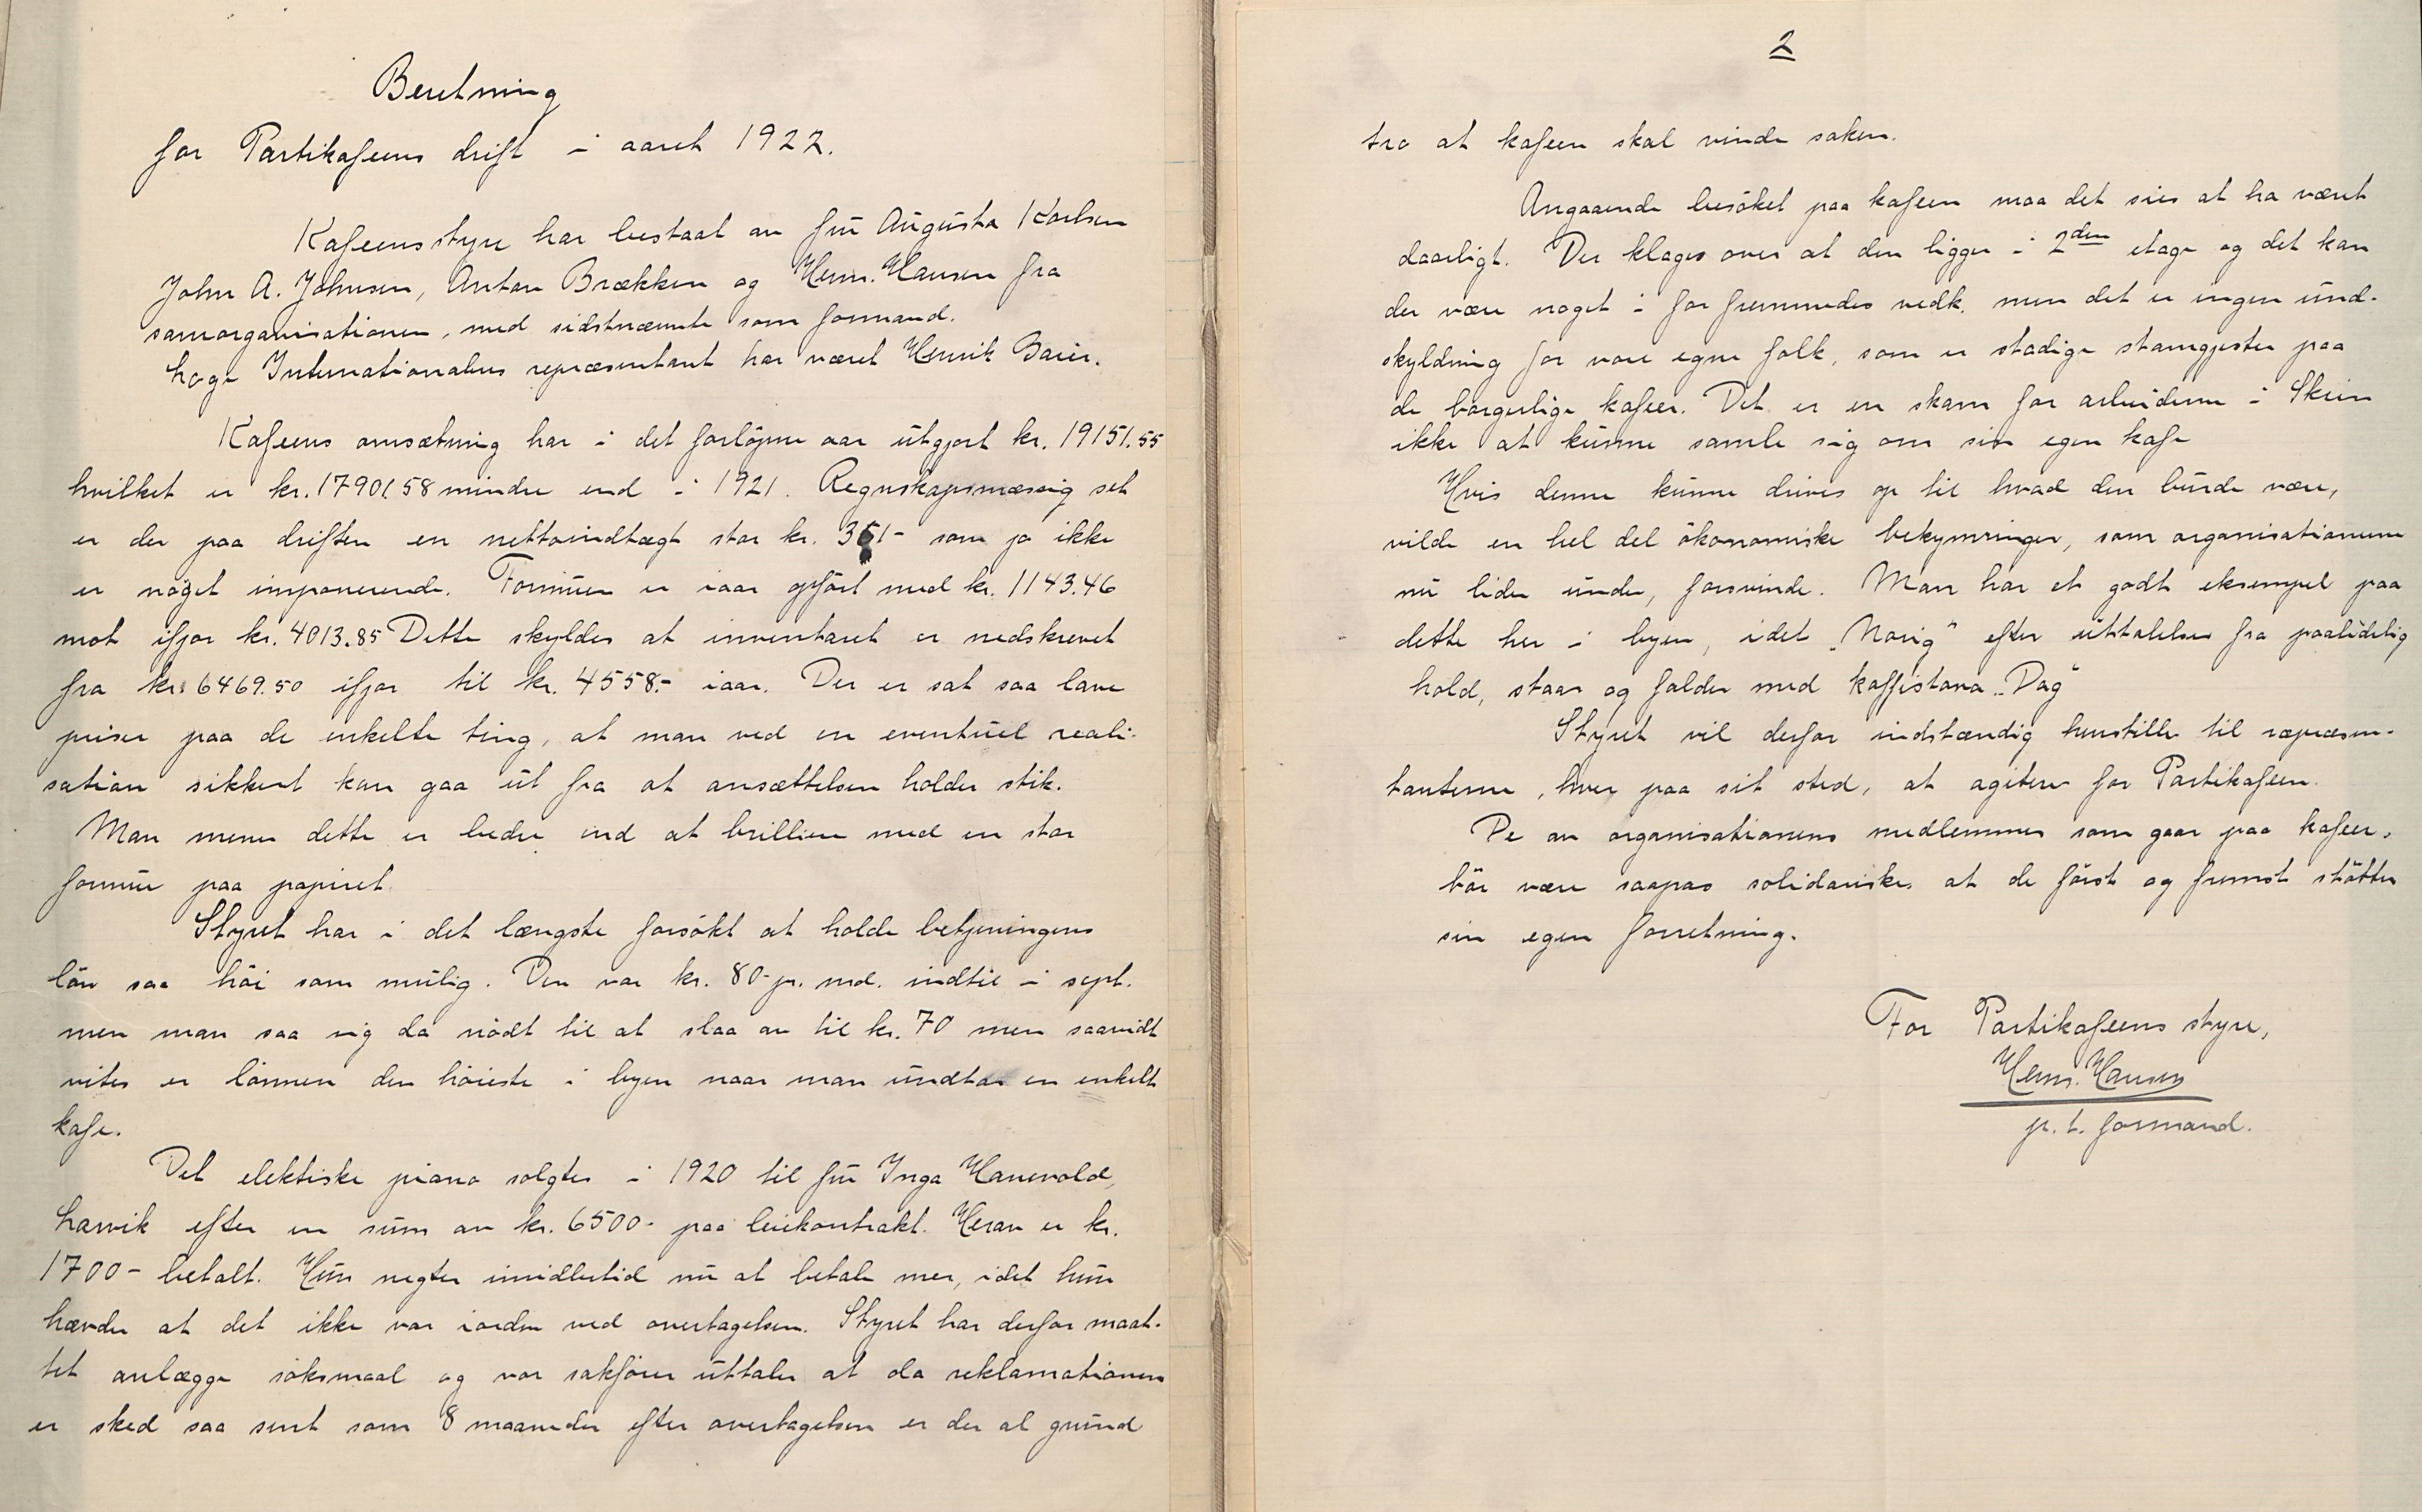 Beretning
for Partikafeens drift i aaret 1922.
Kafeens styre har bestaat av fru Augusta Karlsen
John A. Johnsen, Anton Brækken og Herm. Hansen fra
samorganisationen, med sidstnævnte som formand.
Loge Internationalens repræsentant har været Henrik Baier.
Kafeens omsætning har i det forløpne aar utgjort kr. 19151.55
hvilket er kr. 17901.58 mindre end i 1921. Regnskapsmæssig set
er der paa driften en nettoindtægt stor kr. 351- som jo ikke
er noget imponerende. Formuen er iaar opført med kr. 1143.46
mot ifjor kr. 4013.85 Dette skyldes at inventaret er nedskrevet
fra kr. 6469.50 ifjor til kr. 4558.- iaar. Der er sat saa lave
priser paa de enkelte ting, at man ved en eventuel reali-
sation sikkert kan gaa ut fra at ansættelsen holder stik.
Man mener dette er bedre end at brilliere med en stor
formue paa papiret.
Styret har i det længste forsøkt at holde betjeningens
løn saa høi som mulig. Den var kr. 80- pr. md. indtil i sept.
men man saa sig da nødt til at slaa av til kr. 70 men saavidt
vites er lønnen den høieste i byen naar man undtar en enkelt
kafe.
Det elektiske piano solgtes i 1920 til fru Inga Hanevold,
Larvik efter en sum av kr. 6500- paa leiekontrakt. Herav er kr.
1700- betalt. Hun negter imidlertid nu at betale mer, idet hun
hævder at det ikke var iorden ved overtagelsen. Styret har derfor maat-
tet anlægge søksmaal og vor sakfører uttaler at da reklamationen
er sked saa sent som 8 maaneder efter overtagelsen er der al grund
2
tro at kafeen skal vinde saken.
Angaaende besøket paa kafeen maa det sies at ha været
daarligt. Der klages over at den ligger i 2den etage og det kan
der være noget i for fremmedes vedk. men det er ingen und-
skyldning for vore egne folk, som er stadige stamgjester paa
de borgerlige kafeer. Det er en skam for arbeiderne i Skien
ikke at kunne samle sig om sin egen kafe
Hvis denne kunne drives op til hvad den burde være,
vilde en hel del økonomiske bekymringer, som organisationerne
nu lider under, forsvinde. Man har et godt eksempel paa
dette her i byen, idet „Norig" efter uttalelser fra paalidelig
hold, staar og falder med kaffistova „Dag"
Styret vil derfor indstændig henstille til repræsen-
tanterne, hver paa sit sted, at agitere for Partikafeen.
De av organisationens medlemmer som gaar paa kafeer,
bør være saapas solidariske, at de først og fremst støtter
sin egen forretning.
For Partikafeens styre,
Herm. Hansen
p.t. formand.